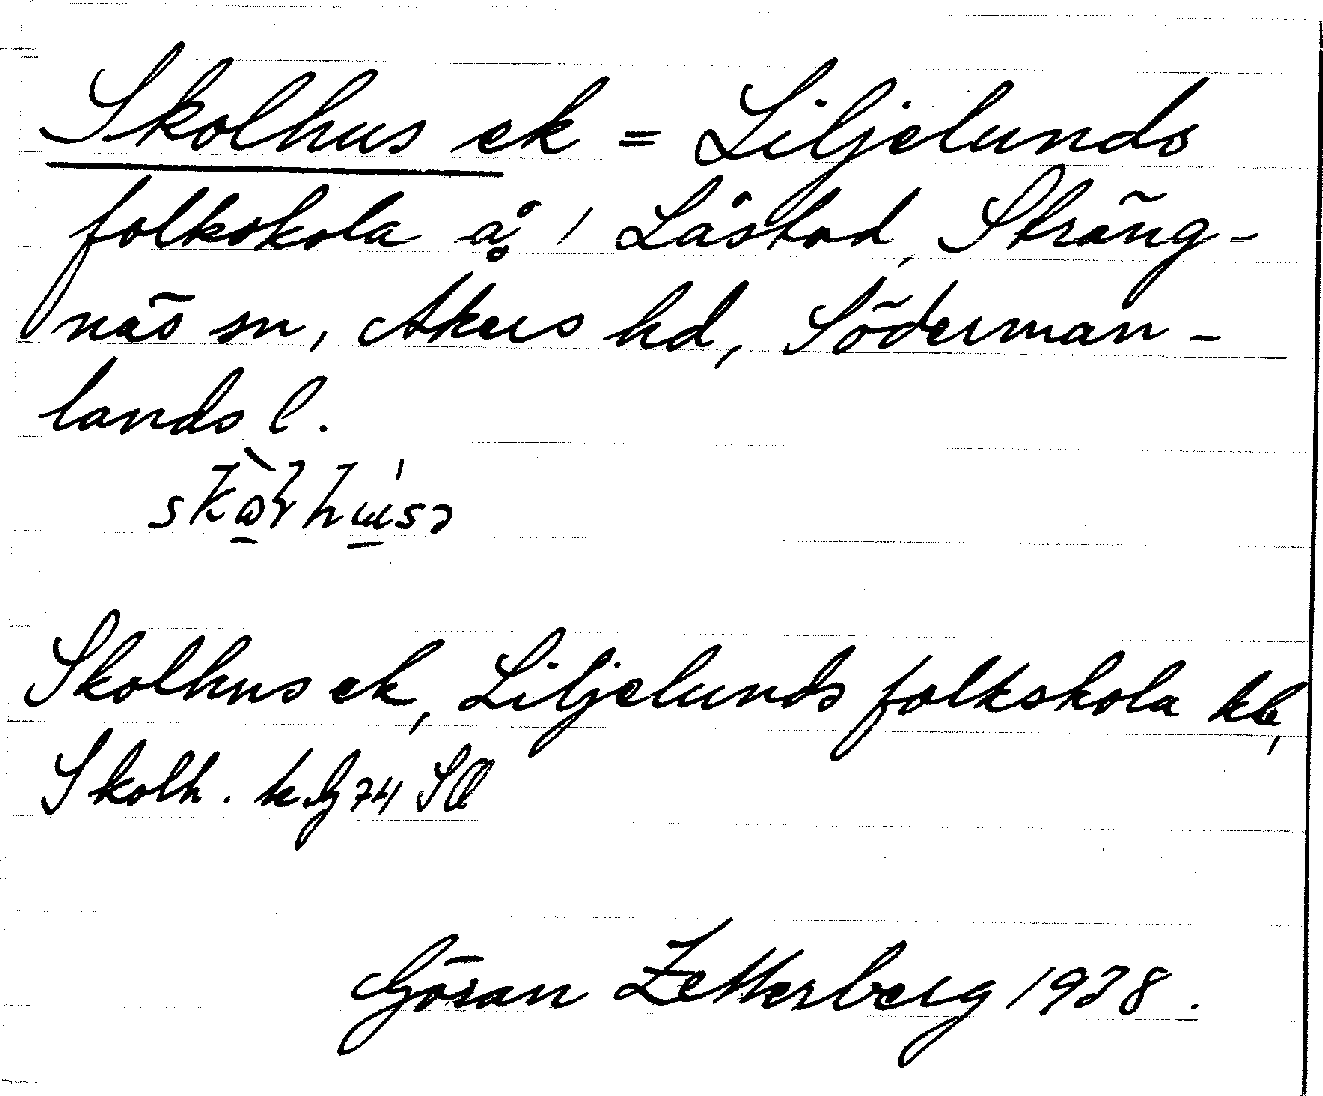 Skolhus ek = Liljelunds
folkskola å 1 Låstad, Sträng-
näs sn, Åkers hd, Söderman-
lands l.
Skolhus ek, Liljelunds folkskola kb,
Skolh. k. 74
Göran Zetterberg 1938.